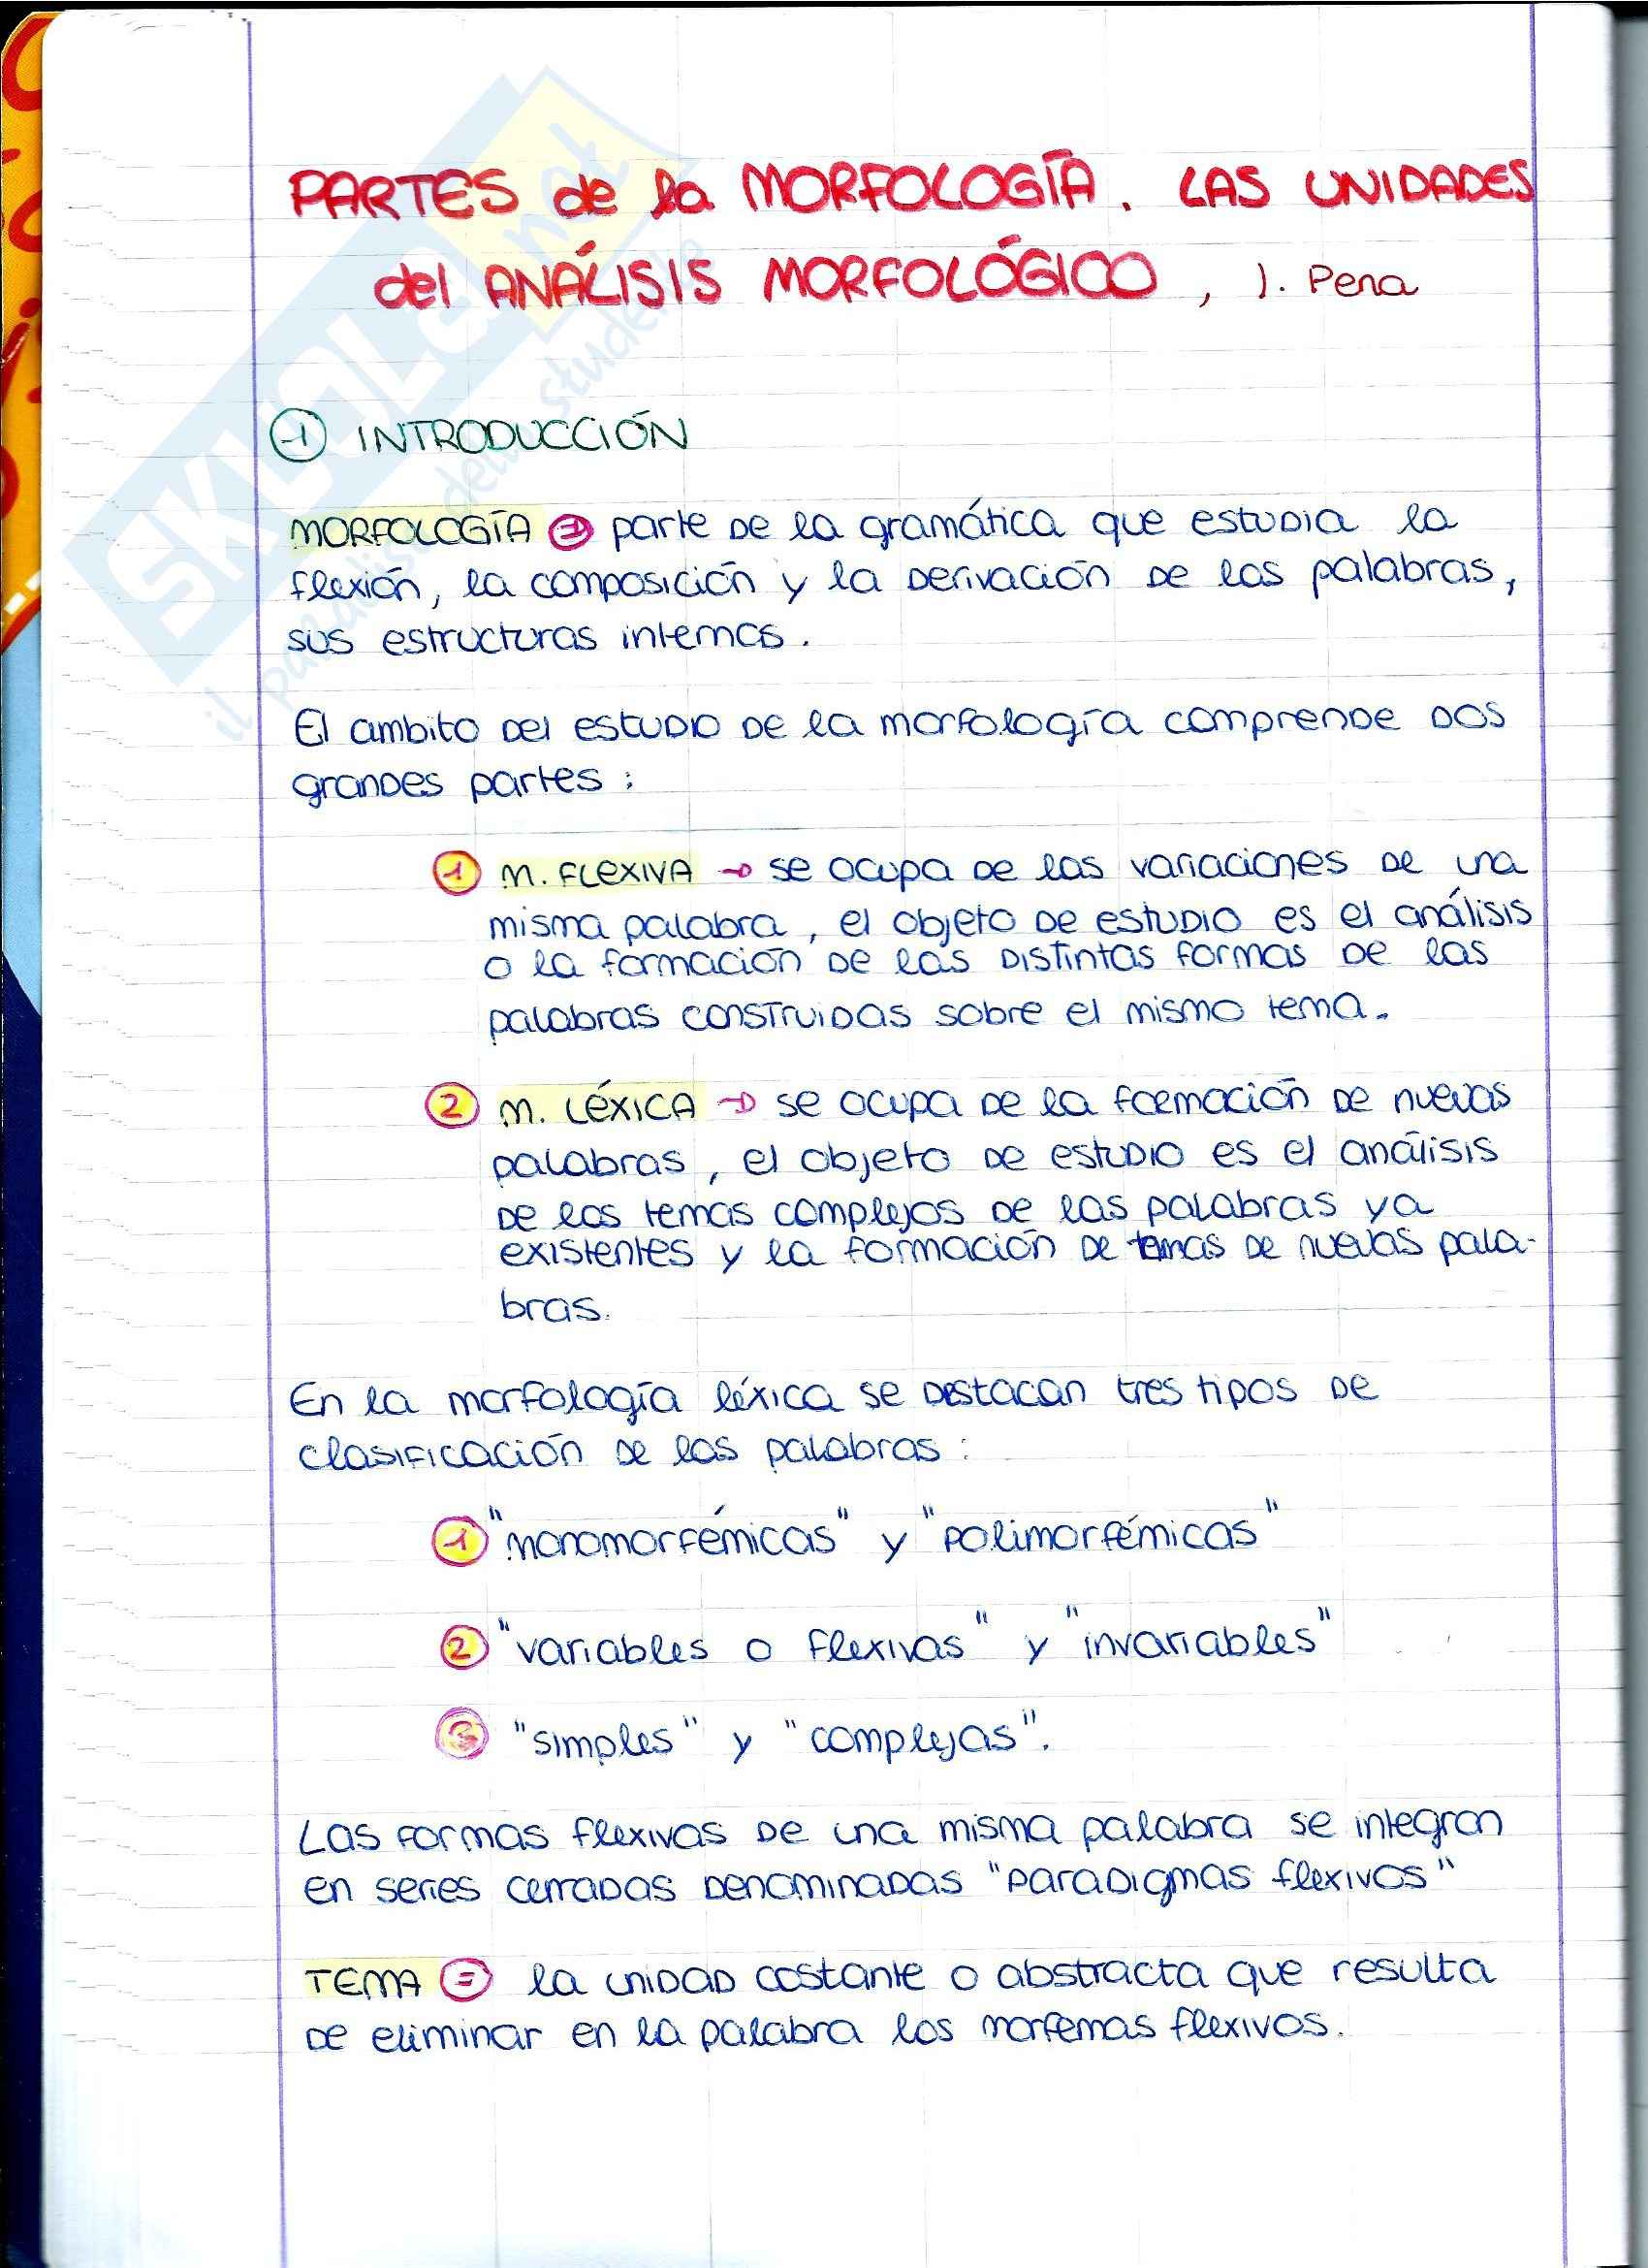 PARTES de la MORFOLOGÍA. LAS UNIDADES
del ANÁLISIS MORFOLÓGICO, J. Pena
1 INTRODUCCIÓN
MORFOLOGÍA = parte de la gramática que estudia la
flexión, la composición y la derivación de las palabras,
sus estructuras internas.
El ambito del estudio de la morfología comprende dos
grandes partes:
1 M. FLEXIVA → se ocupa de las variaciones de una
misma palabra, el objeto de estudio es el análisis
o la formación de las distintas formas de las
palabras construidas sobre el mismo tema.
2 M. LÉXICA → se ocupa de la formación de nuevas
palabras, el objeto de estudio es el análisis
de los temas complejos de las palabras ya
existentes y la formación de temas de nuevas pala-
bras.
En la morfología léxica se destacan tres tipos de
clasificación de las palabras:
1 "monomorfémicas" y "polimorfémicas"
2 "variables o flexivas" y "invariables"
3 "simples" y "complejas".
Las formas flexivas de una misma palabra se integran
en series cerradas denominadas "paradigmas flexivos"
TEMA = la unidad costante o abstracta que resulta
de eliminar en la palabra los morfemas flexivos.
SKUOLA.net
il paradiso dello studente